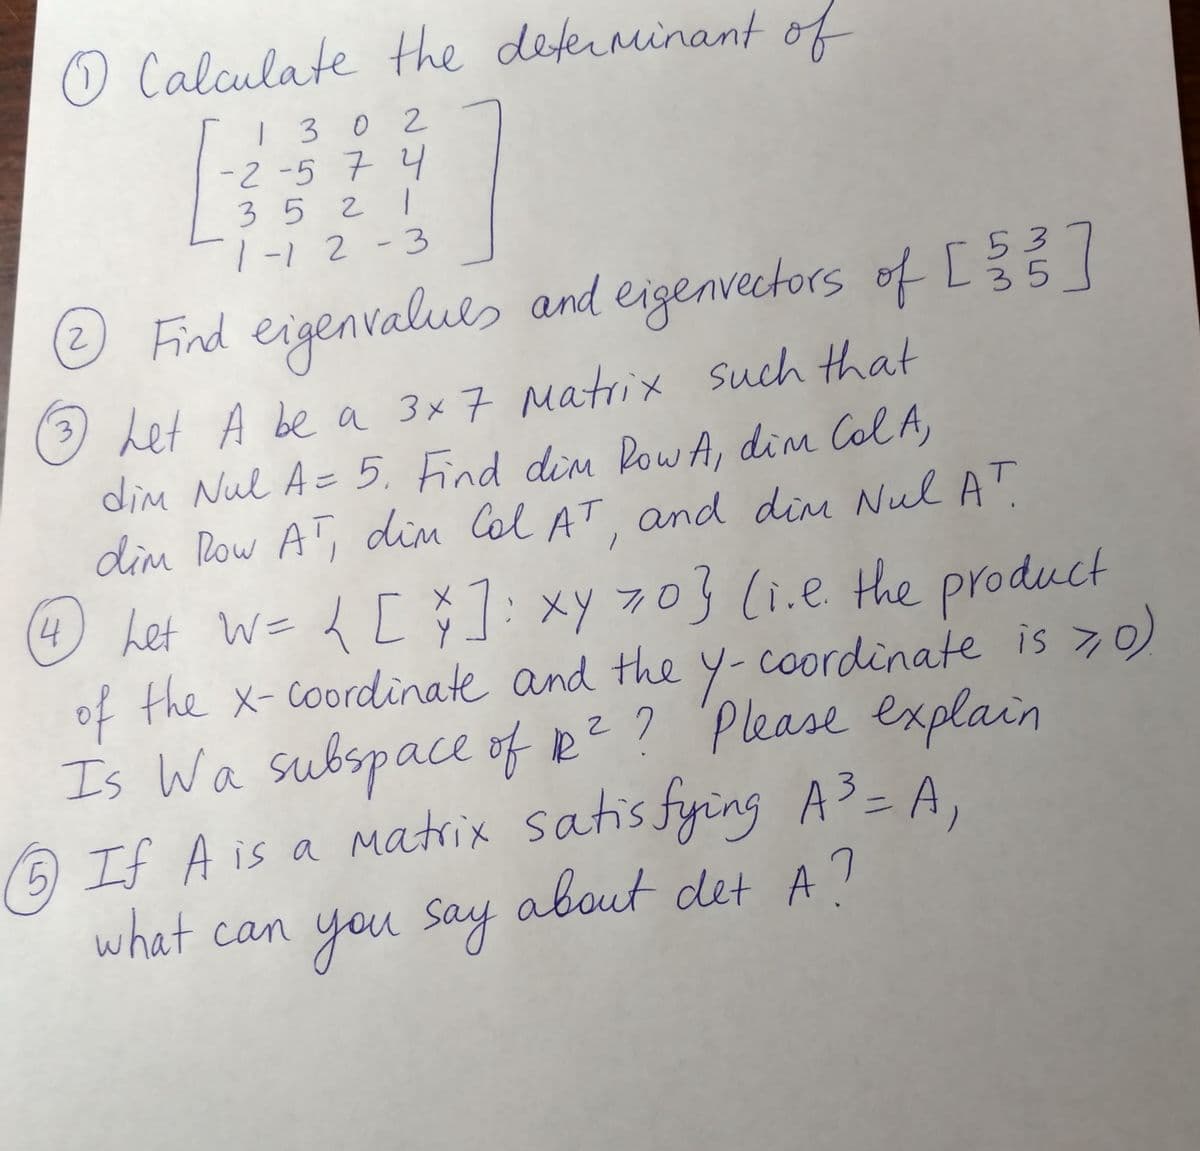 ① Calculate the determinant of
[ 1 3 0 2
-2 -5 7 4
3 5 2 1
1 -1 2 -3 ]
② Find eigenvalues and eigenvectors of [ 5 3
3 5 ]
③ Let A be a 3×7 matrix such that
dim Nul A = 5. Find dim Row A, dim Col A,
dim Row Aᵀ, dim Col Aᵀ, and dim Nul Aᵀ.
④ Let W = { [ x
y ] : xy ⩾ 0 } (i.e. the product
of the x-coordinate and the y-coordinate is ⩾ 0).
Is W a subspace of ℝ² ? Please explain
⑤ If A is a matrix satisfying A³ = A,
what can you say about det A ?